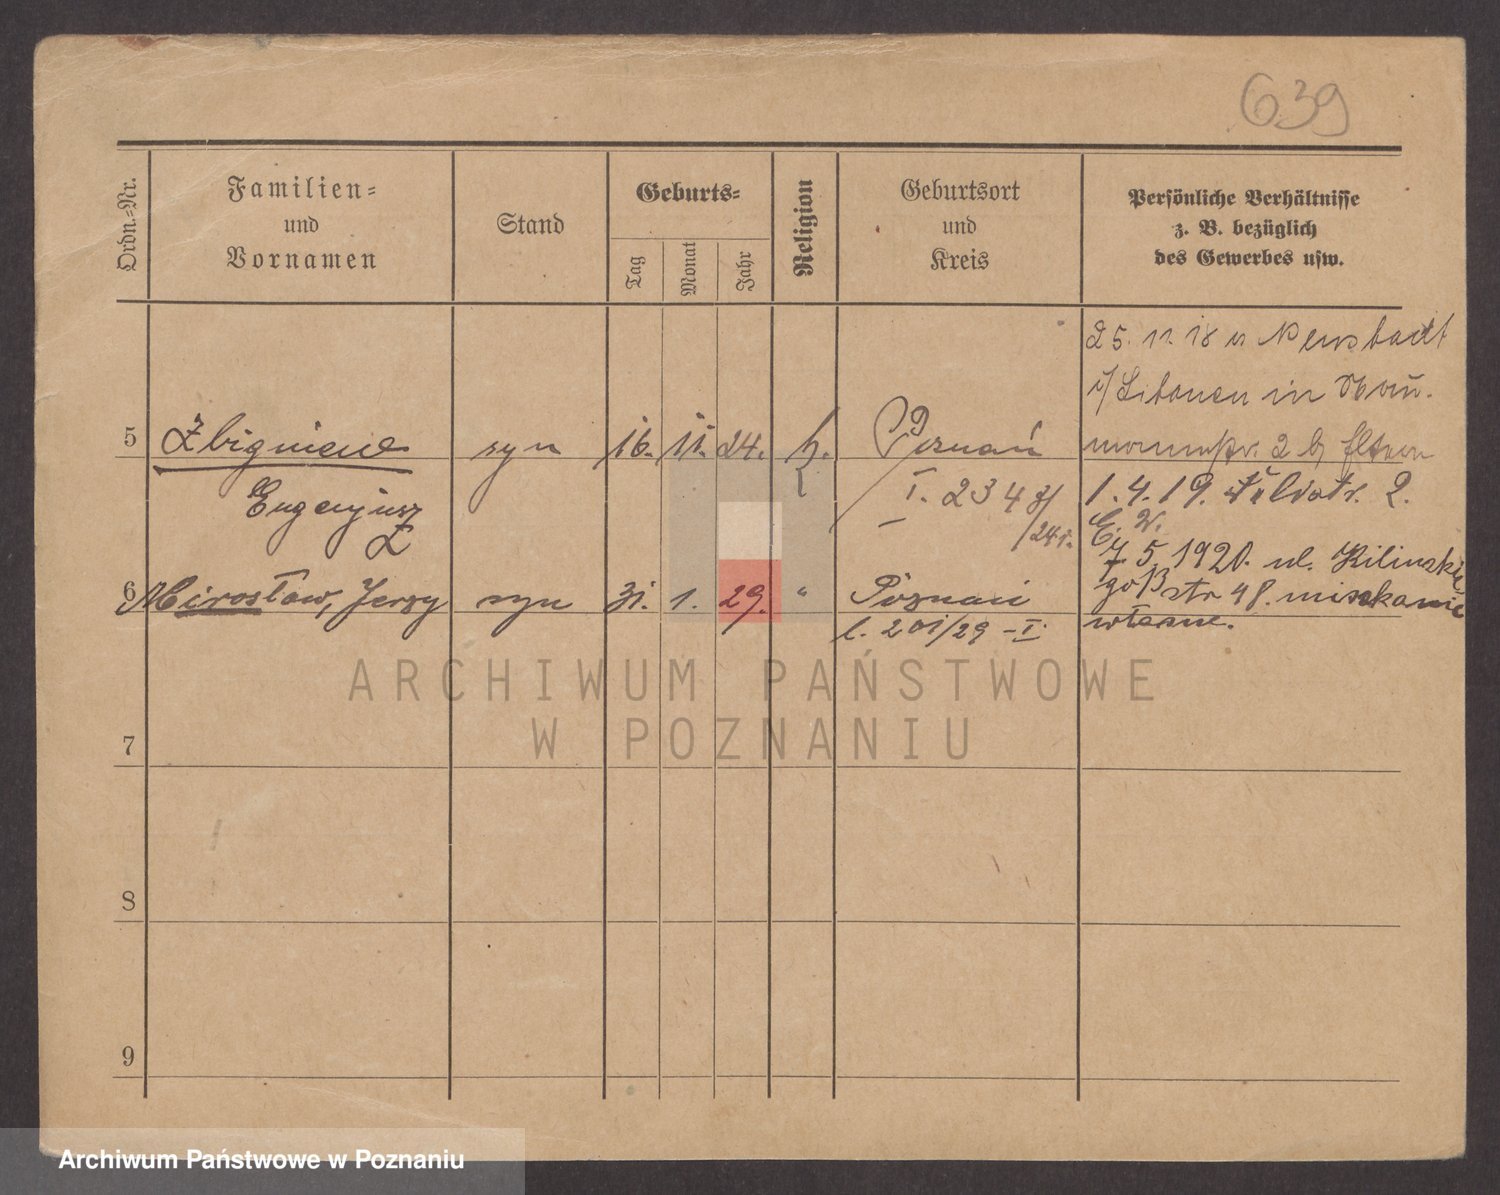 639
Ordn.-Nr.
Familien-
und
Vornamen
Stand
Geburts-
Tag
Monat
Jahr
Religion
Geburtsort
und
Kreis
Persönliche Verhältnisse
z. B. bezüglich
des Gewerbes usw.
25. 11. 18 Neustadt
in
5 Zbigniew syn 16. 11. 24. Poznań 2 b/ Eltern
Eugenjusz I. 234 1. 4. 19. 2.
Z /24 r. E. W.
7 5 1920. ul. Kilińskie
6 Mirosław, Jerzy syn 31. 1. 29. " Poznań go str 48. mieszkanie
l. 201/29 - I. własne.
7
8
9
ARCHIWUM PAŃSTWOWE
W POZNANIU
Archiwum Państwowe w Poznaniu